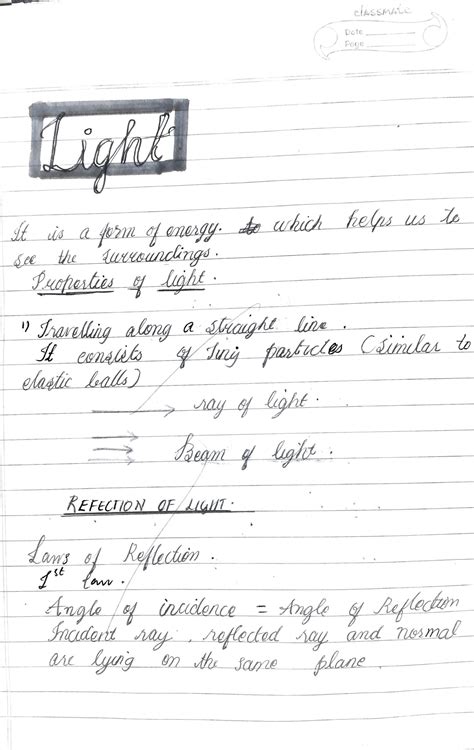 classmate
Date
Page
Light
It is a form of energy. to which helps us to
see the surroundings.
Properties of light.
1) Travelling along a straight line.
It consists of Tiny particles (Similar to
elastic balls)
ray of light.
Beam of light.
REFECTION OF LIGHT.
Laws of Reflection.
1st law.
Angle of incidence = Angle of Reflection
Incident ray, reflected ray and normal
are lying on the same plane.